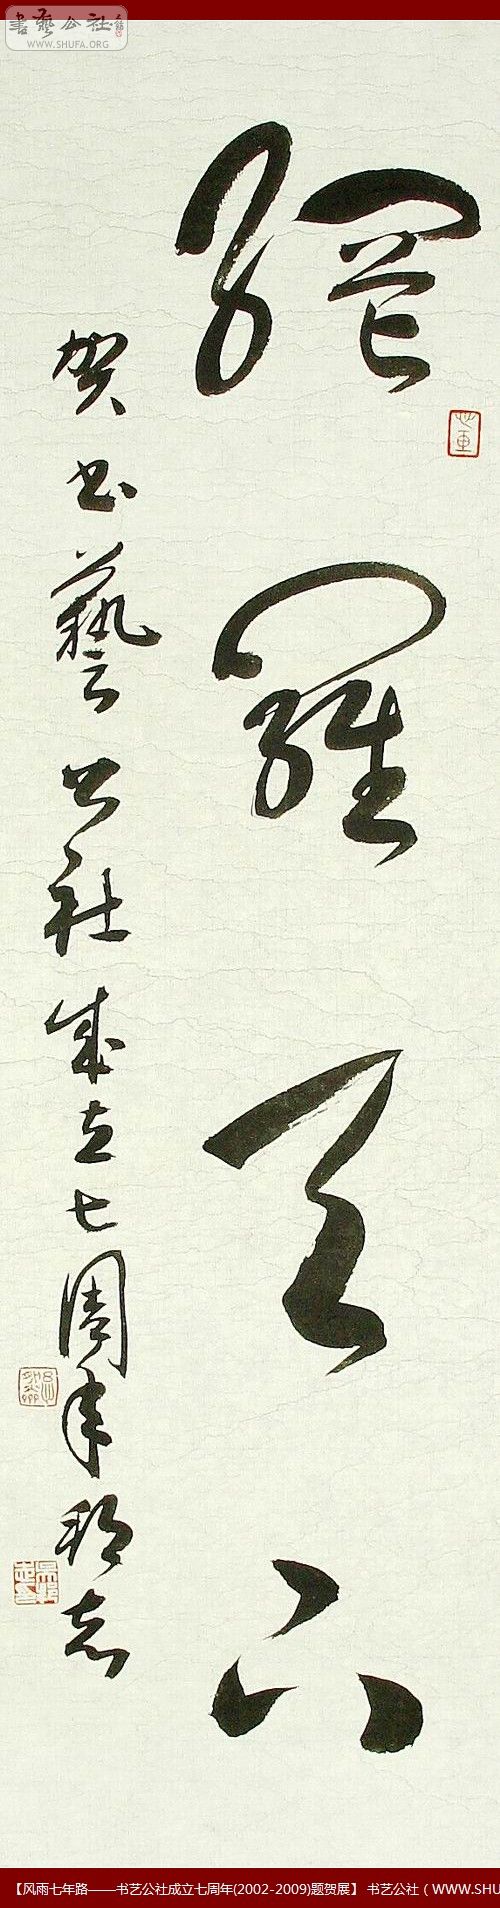 書藝公社
WWW.SHUFA.ORG
網羅天下
贺书藝公社成立七周年 郑志
【风雨七年路——书艺公社成立七周年(2002-2009)题贺展】 书艺公社（WWW.SHU